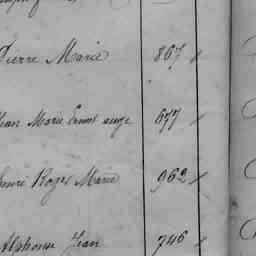 Pierre Marie 867
Jean Marie Ernest ange 677
henri Roger Marie 962
Alphonse Jean 746